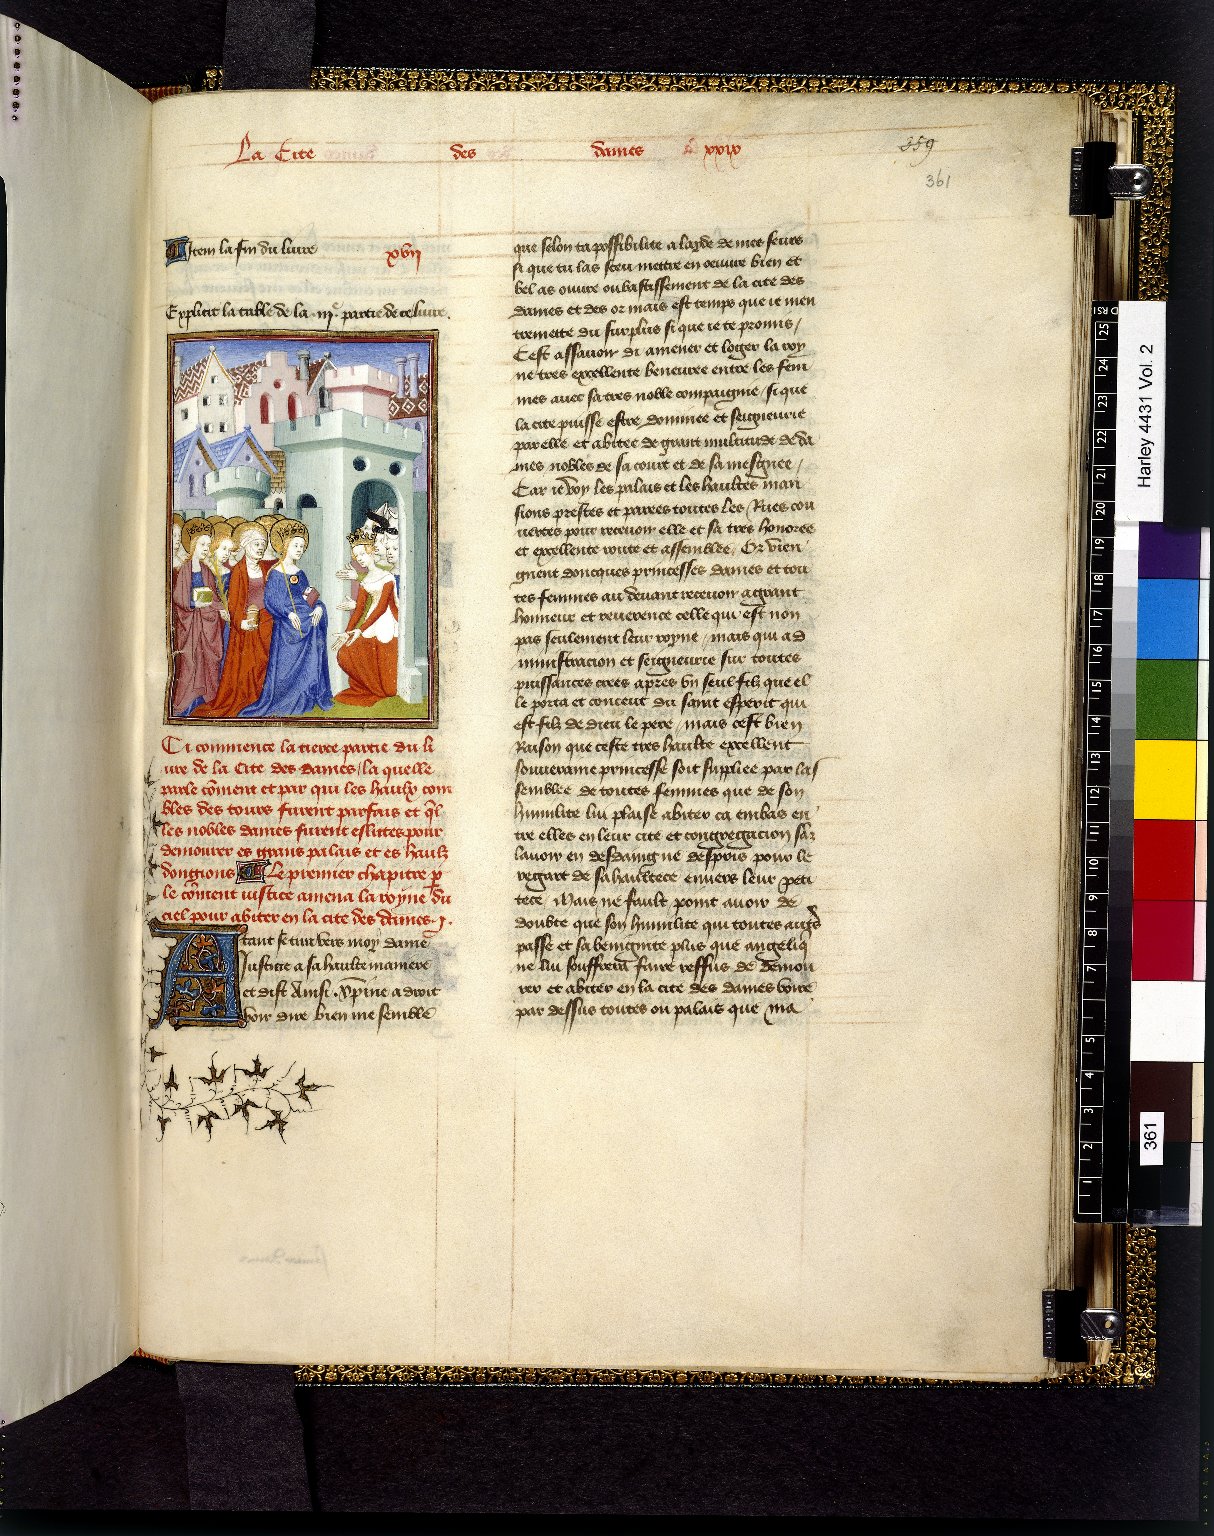 La Cite des dames xxix
359
361
Item la fin du livre xvii
Explicit la table de la iii.e partie de ce livre.
Ci commence la tierce partie du li
vre de la Cite des dames / la quelle
parle coment et par qui les haulx com
bles des tours furent parfais et ql
les nobles dames furent eslittes pour
demourer es grans palais et es haulz
dongions Le premier chapitre p
le coment iustice amena la royne du
ciel pour abiter en la cite des dames .i.
Atant se tira vers moy dame
Justice a sa haulte maniere
et dist Ainsi Xpine a droit
voir dire bien me semble
que selon ta possibilite a layde de mes seurs
si que tu las sceu mettre en oeuvre bien et
bel as ouvre ou bastissement de la cite des
dames et des or mais est temps que ie men
tremette du surplus si que ie te promis /
Cest assavoir di amener et loger la roy
ne tres excellente beneuree entre les fem
mes avec sa tres noble compaignie / si que
la cite puisse estre dominee et seigneurie
par elle et abitee de grant multitude de da
mes nobles de sa court et de sa mesgnee /
Car ie voy les palais et les haultes man
sions prestes et parees toutes les Rues cou
vertes pour recevoir elle et sa tres honoree
et excellente route et assemblee / Or vien
gnent doncques princesses dames et tou
tes femmes au devant recevoir a grant
honneur et reverence celle qui est non
pas seulement leur royne / mais qui a ad
ministracion et seigneurie sur toutes
puissances crees apres un seul filz que el
le porta et conceut du saint esperit qui
est filz de dieu le pere / mais cest bien
Raison que ceste tres haulte excellent
souveraine princesse soit suppliee par las
semblee de toutes femmes que de son
humilite lui plaise abiter ca embas en
tre elles en leur cite et congregacion sanz
lavoir en desdaing ne despris pour le
regart de sa haultece envers leur peti
tece / Mais ne fault point avoir de
doubte que son humilite qui toutes autres
passe et sa benignite plus que angeliq
ne lui souffrera faire reffus de demou
rer et abiter en la cite des dames voire
par dessus toutes ou palais que ma
Harley 4431 Vol. 2
361
1 2 3 4 5 6 7 8 9 10 11 12 13 14 15 16 17 18 19 20 21 22 23 24 25